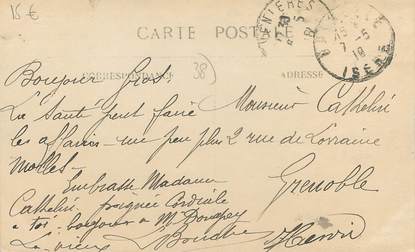 15 €
CARTE POSTALE
CORRESPONDANCE
38
ADRESSE
ISÈRE
Bonjour Gros
La Santé peut faire
les affaires - un peu plus
molles -
Embrasse Madame
Cathelin poignée Cordiale
à toi. bonjour à M
Le vieux
Henri
Monsieur Cathelin
2 rue de Lorraine
Grenoble